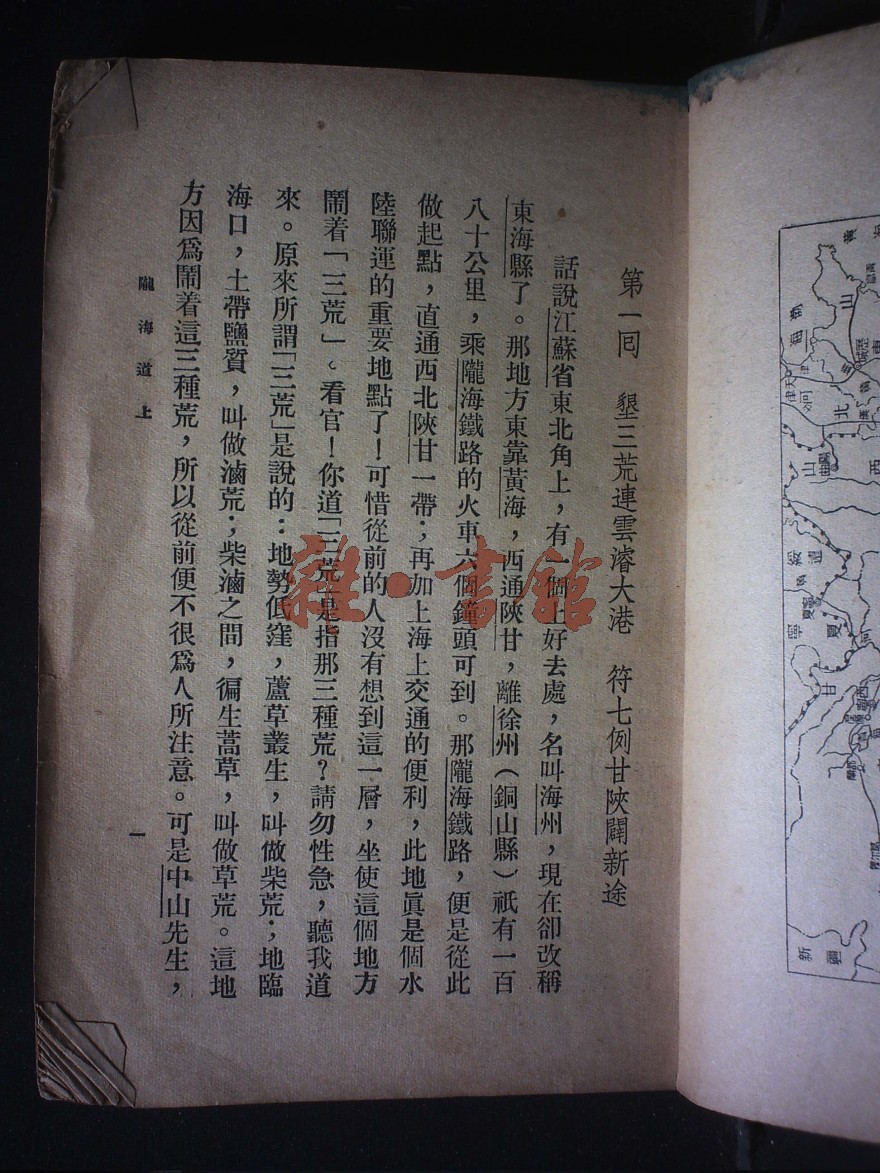 第一回　墾三荒連雲濬大港　符七例甘陝闢新途
話說江蘇省東北角上，有一個上好去處，名叫海州，現在卻改稱
東海縣了。那地方東靠黃海，西通陝甘，離徐州（銅山縣）祇有一百
八十公里，乘隴海鐵路的火車六個鐘頭可到。那隴海鐵路，便是從此
做起點，直通西北陝甘一帶；再加上海上交通的便利，此地眞是個水
陸聯運的重要地點了！可惜從前的人沒有想到這一層，坐使這個地方
鬧着「三荒」。看官！你道「三荒」是指那三種荒？請勿性急，聽我道
來。原來所謂「三荒」是說的：地勢低窪，蘆草叢生，叫做柴荒；地臨
海口，土帶鹽質，叫做滷荒；柴滷之間，徧生蒿草，叫做草荒。這地
方因爲鬧着這三種荒，所以從前便不很爲人所注意。可是中山先生，
隴海道上
一
雜·書館